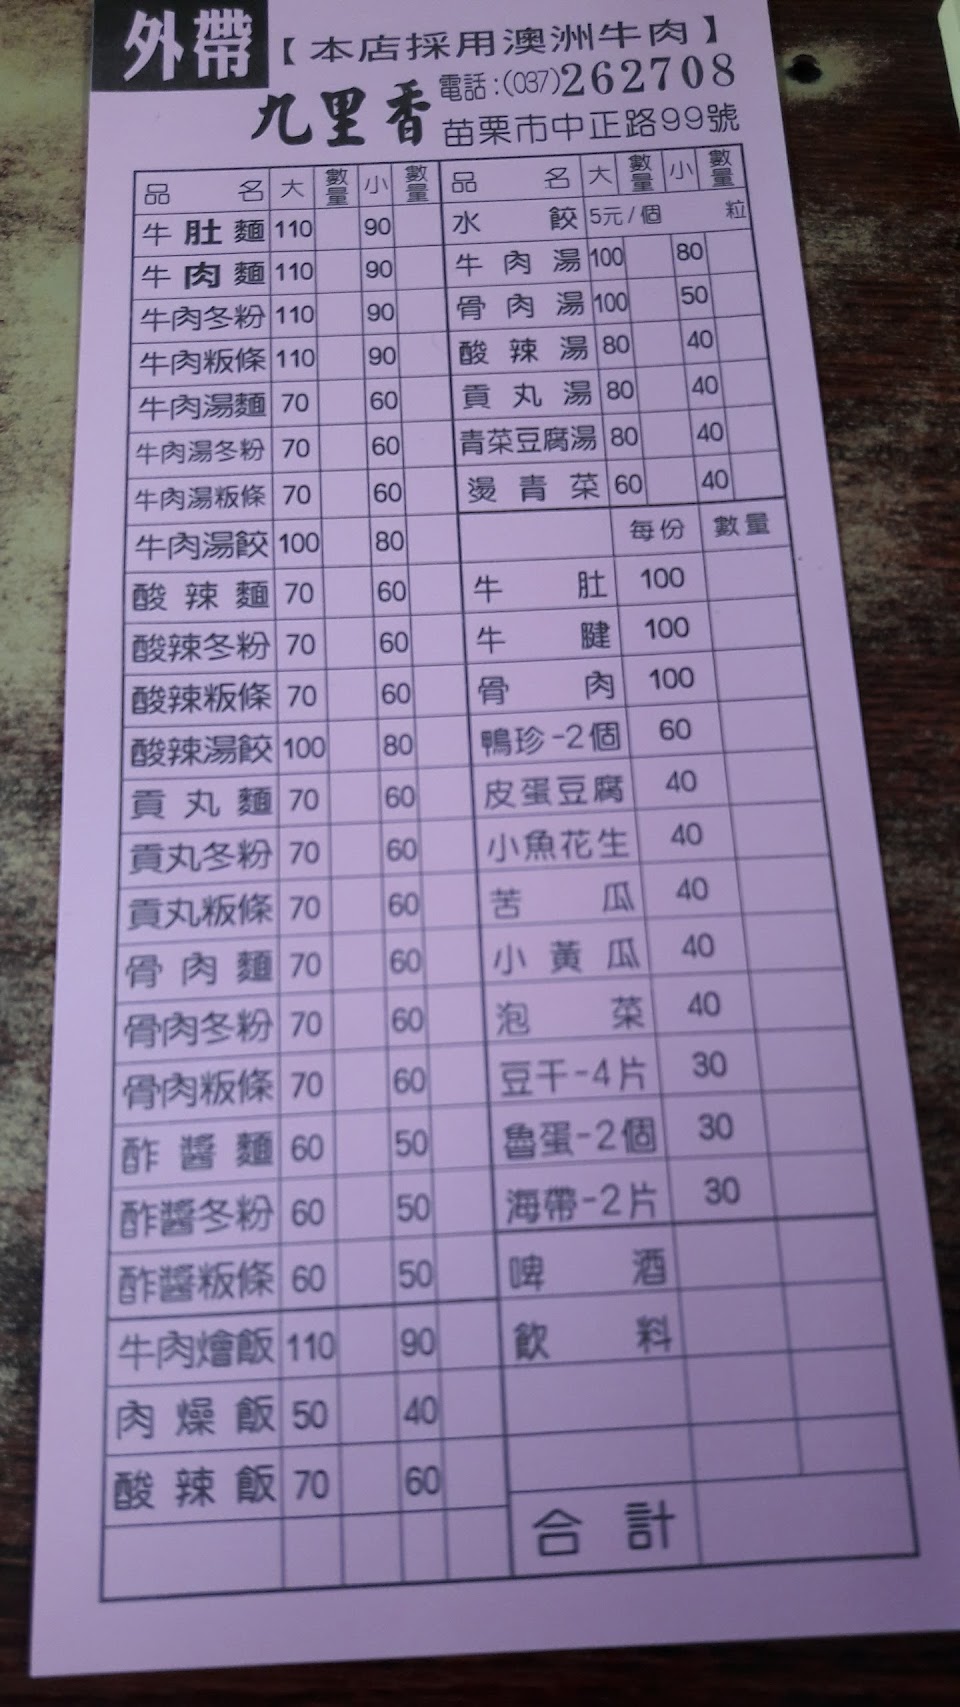 外帶
【本店採用澳洲牛肉】
九里香
電話:(037)262708
苗栗市中正路99號
品名 大 數量 小 數量
牛肚麵 110 90
牛肉麵 110 90
牛肉冬粉 110 90
牛肉粄條 110 90
牛肉湯麵 70 60
牛肉湯冬粉 70 60
牛肉湯粄條 70 60
牛肉湯餃 100 80
酸辣麵 70 60
酸辣冬粉 70 60
酸辣粄條 70 60
酸辣湯餃 100 80
貢丸麵 70 60
貢丸冬粉 70 60
貢丸粄條 70 60
骨肉麵 70 60
骨肉冬粉 70 60
骨肉粄條 70 60
酢醬麵 60 50
酢醬冬粉 60 50
酢醬粄條 60 50
牛肉燴飯 110 90
肉燥飯 50 40
酸辣飯 70 60
品名 大 數量 小 數量
水餃 5元/個 粒
牛肉湯 100 80
骨肉湯 100 50
酸辣湯 80 40
貢丸湯 80 40
青菜豆腐湯 80 40
燙青菜 60 40
每份 數量
牛肚 100
牛腱 100
骨肉 100
鴨珍-2個 60
皮蛋豆腐 40
小魚花生 40
苦瓜 40
小黃瓜 40
泡菜 40
豆干-4片 30
魯蛋-2個 30
海帶-2片 30
啤酒
飲料
合計